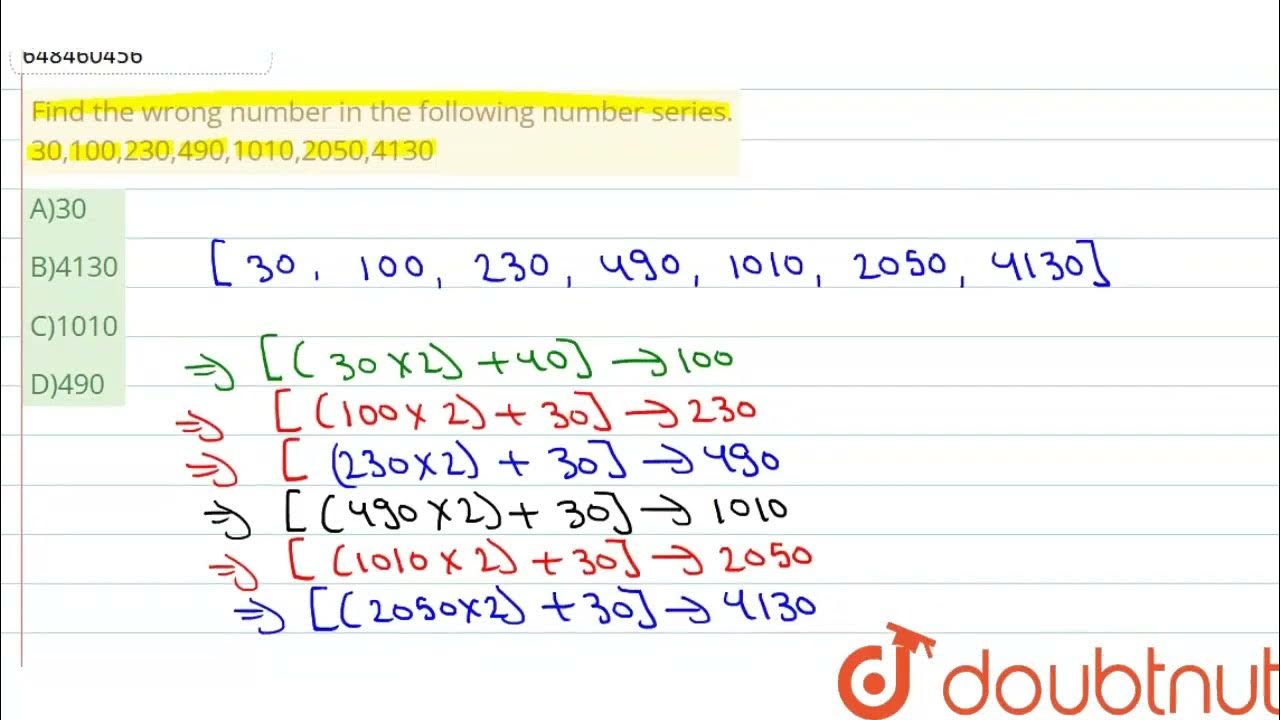 648460456
Find the wrong number in the following number series.
30,100,230,490,1010,2050,4130
A)30
B)4130
C)1010
D)490
[ 30, 100, 230, 490, 1010, 2050, 4130]
⇒ [( 30 × 2) + 40] → 100
⇒ [ (100 × 2) + 30] → 230
⇒ [ (230 × 2) + 30] → 490
⇒ [ (490 × 2) + 30] → 1010
⇒ [ (1010 × 2) + 30] → 2050
⇒ [ (2050 × 2) + 30] → 4130
doubtnut